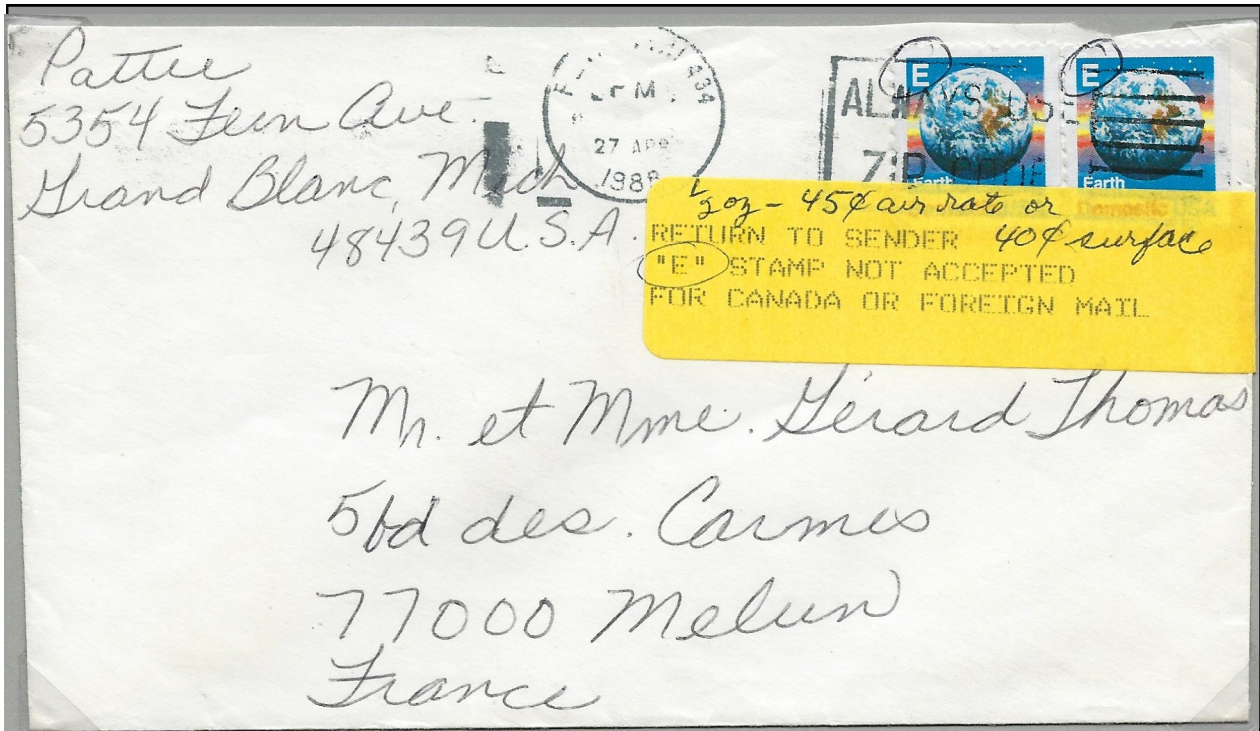 Pattie
5354 Fern Ave.
Grand Blanc, Mich
48439 U.S.A.
PM
27 APR
1988
ALWAYS USE
ZIP CODE
E
Earth
E
Earth
Domestic USA
1/2 oz - 45¢ air rate or
40¢ surface
RETURN TO SENDER
"E" STAMP NOT ACCEPTED
FOR CANADA OR FOREIGN MAIL
Mr. et Mme. Gérard Thomas
5 bd des. Carmes
77000 Melun
France